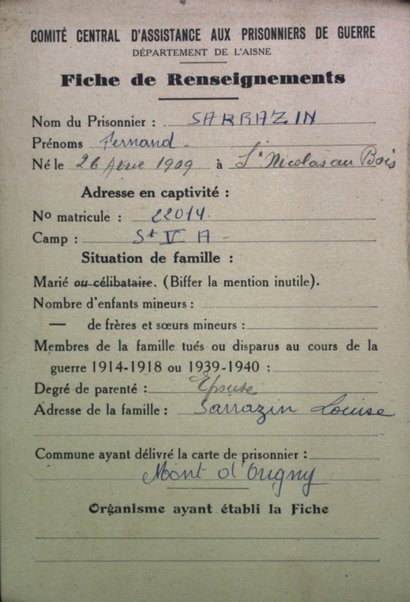 COMITÉ CENTRAL D'ASSISTANCE AUX PRISONNIERS DE GUERRE
DÉPARTEMENT DE L'AISNE
Fiche de Renseignements
Nom du Prisonnier : SARRAZIN
Prénoms Fernand
Né le 26 1909 à St Nicolas au Bois
Adresse en captivité :
No matricule : 22014
Camp : St V A
Situation de famille :
Marié ou célibataire. (Biffer la mention inutile).
Nombre d'enfants mineurs :
— de frères et sœurs mineurs :
Membres de la famille tués ou disparus au cours de la
guerre 1914-1918 ou 1939-1940 :
Degré de parenté : Epouse
Adresse de la famille : Sarrazin Louise
Commune ayant délivré la carte de prisonnier :
Mont d'Origny
Organisme ayant établi la Fiche